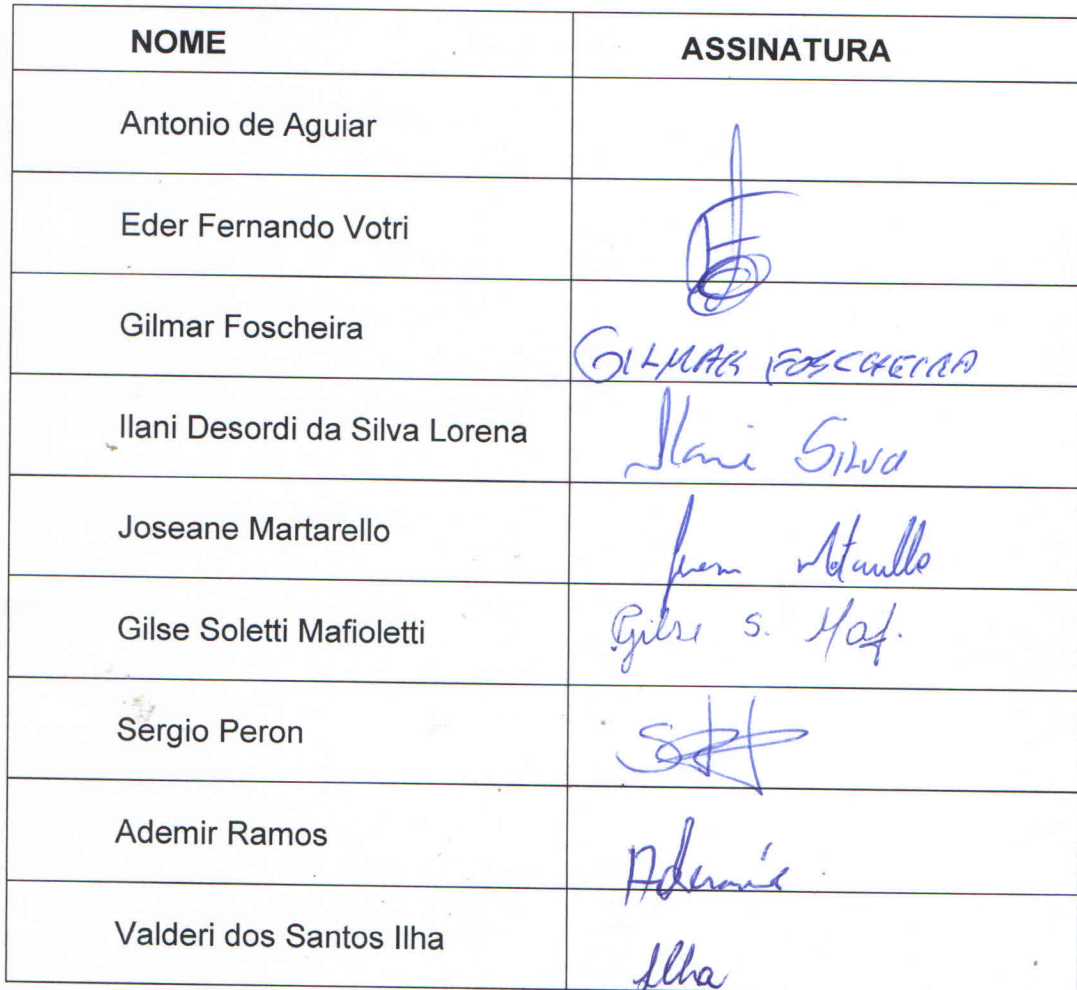 NOME ASSINATURA
Antonio de Aguiar
Eder Fernando Votri
Gilmar Foscheira GILMAR FOSCHEIRA
Ilani Desordi da Silva Lorena Ilani Silva
Joseane Martarello
Gilse Soletti Mafioletti Gilse S. Maf.
Sergio Peron
Ademir Ramos Ademir
Valderi dos Santos Ilha Ilha